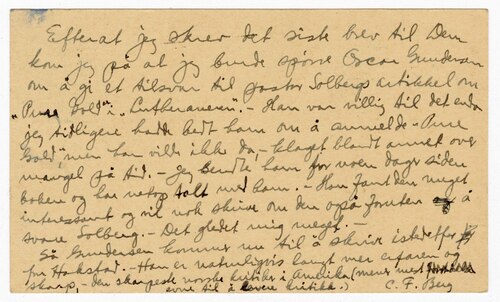 Efterat jeg skrev det siste brev til Dem
kom jeg på at jeg burde spørre Oscar Gundersen
om å gi et tilsvar til pastor Solbergs artikkel om
"Pure Gold" i "Lutheraneren". - Han var villig til det enda
jeg tidligere hadde bedt ham om å anmelde "Pure
Gold", men han vilde ikke da, - klaget blandt annet over
mangel på tid. - Jeg sendte ham for noen dager siden
boken og har netop talt med ham. - Han fant den meget
interessant og vil nok skrive om den også foruten å
svare Solberg. - Det gledet mig meget. -
Så Gundersen kommer nu til å skrive istedetfor
for Hakstad. - Han er naturligvis langt mer erfaren og
skarp, - den skarpeste norske kritiker i Amerika (menes med
evne til å levere kritikk.) C. F. Berg